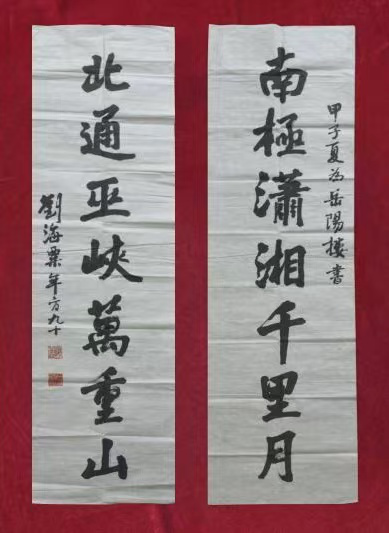 南極瀟湘千里月
甲子夏為岳陽樓書
北通巫峽萬重山
劉海粟年方九十